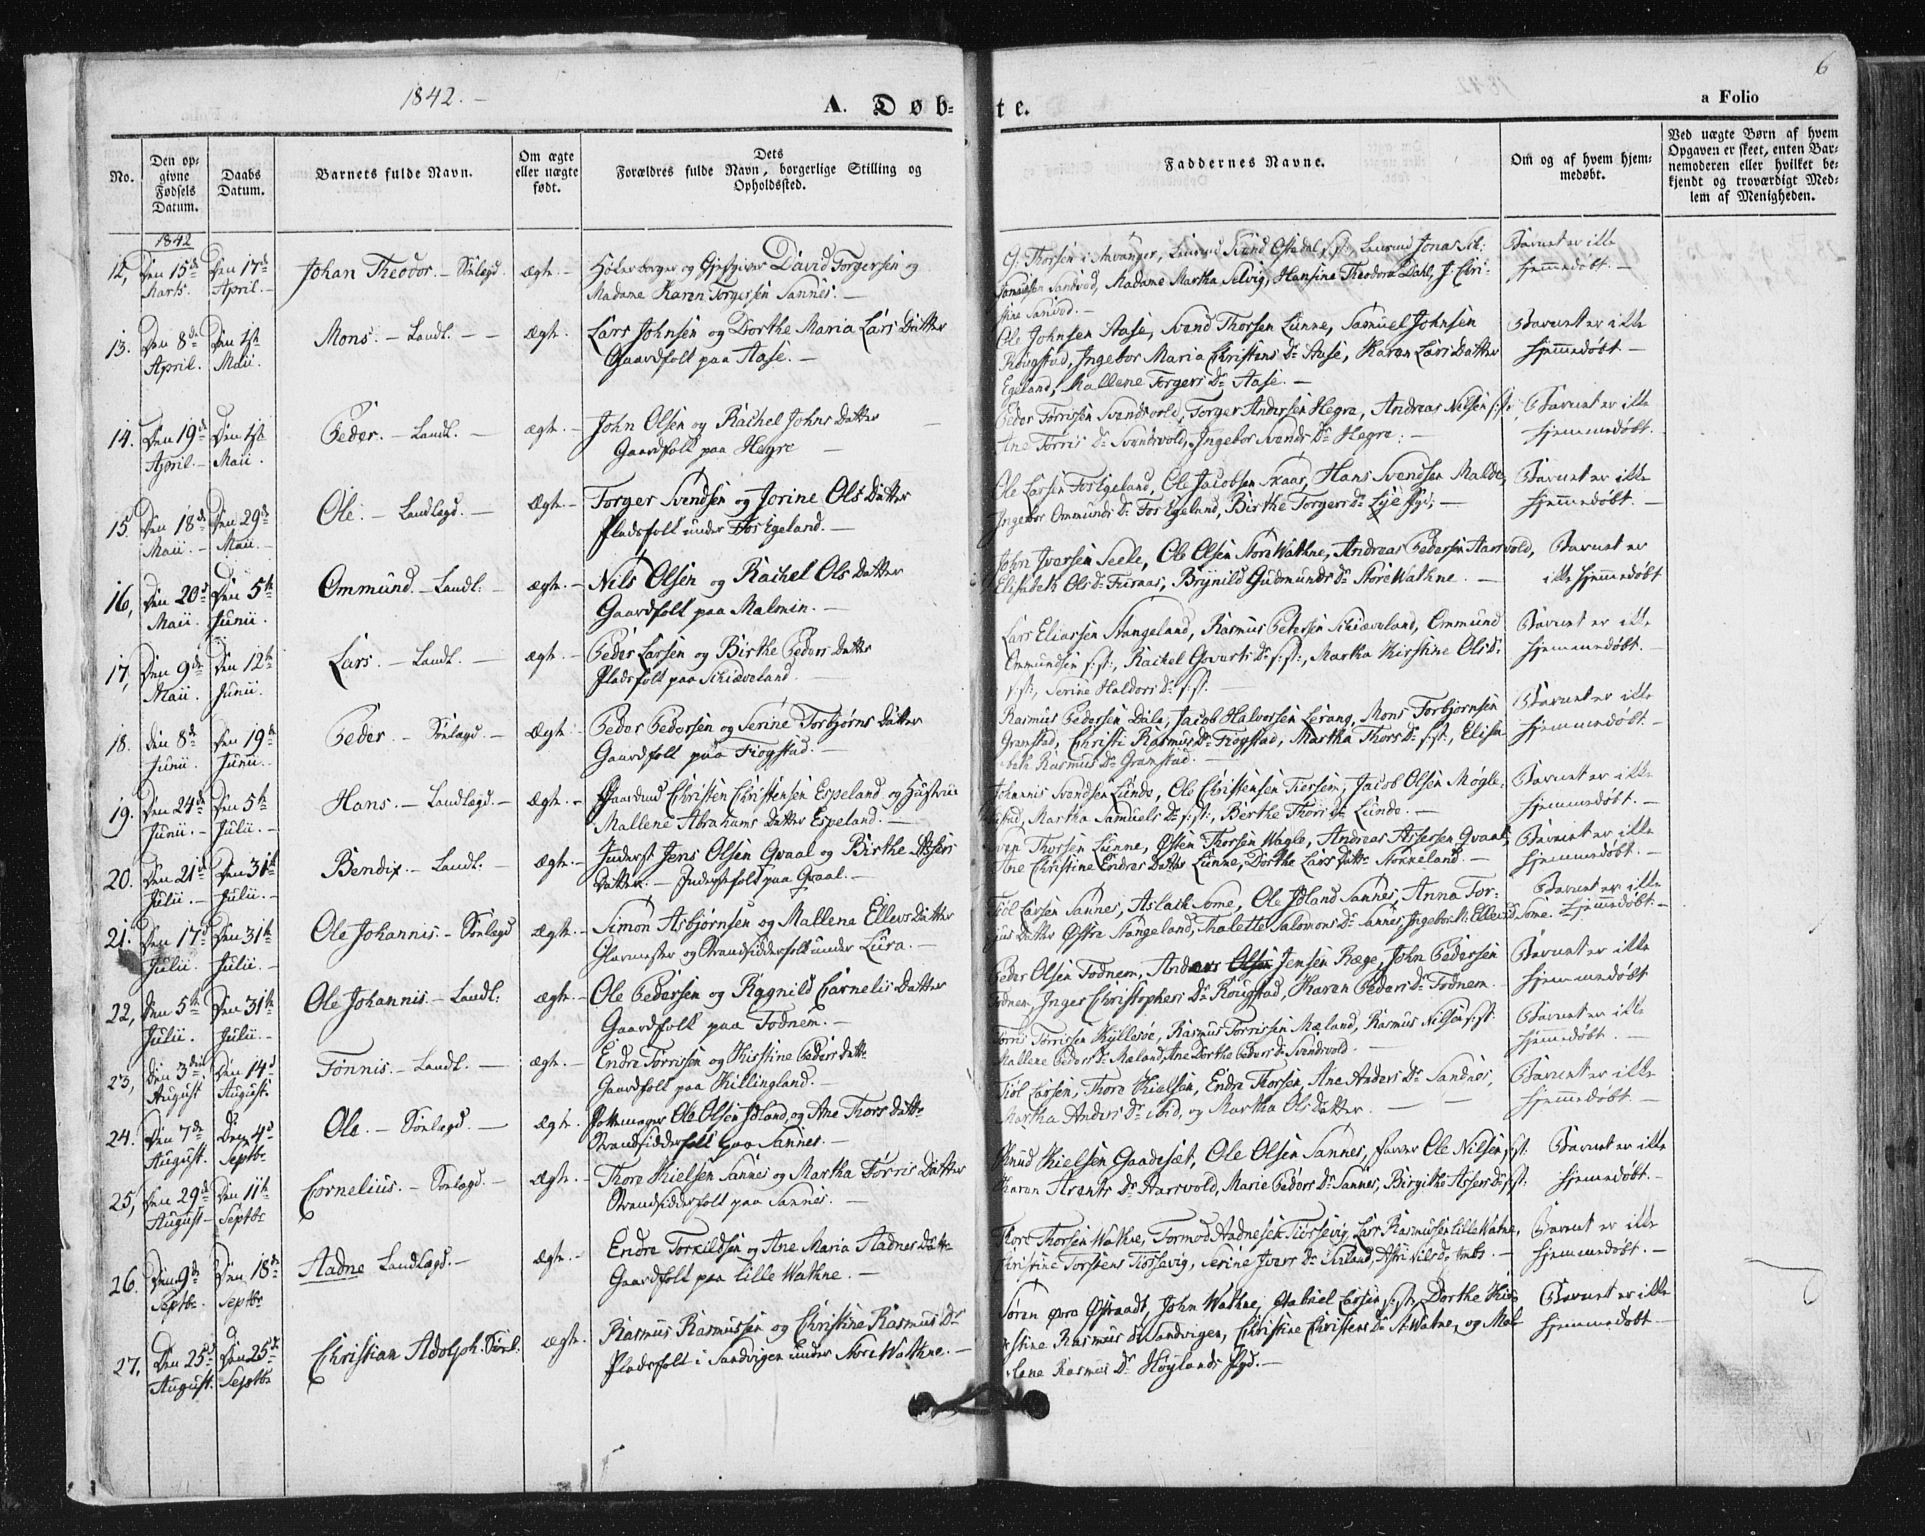 1842. —
A. Døb=
te.
6
a Folio
No.
Den op=
givne
Fødsels
Datum.
Daabs
Datum.
Barnets fulde Navn.
Om ægte
eller uægte
født.
Dets
Forældres fulde Navn, borgerlige Stilling og
Opholdssted.
Faddernes Navne.
Om og af hvem hjem=
medøbt.
Ved uægte Børn af hvem
Opgaven er skeet, enten Bar=
nemoderen eller hvilket be=
kjendt og troværdigt Med=
lem af Menigheden.
1842
12, Den 15de Den 17de Johan Theodor — Sönlagd. ægte — Høkerborger og Gjestgiver David Torgersen og
Marts. April. — Madame Karen Torgersen Sannes. —
Thorsen i Stavanger, Svend Ostedal, Jonas
Sandved, Madame Martha Selvig, Hansine Theodora Dahl, J. Chri-
stine Sandved. —
Barnet er ille
hjemmedøbt. —
13. Den 8de Den 1ste Mons. — Landl. — — ægte. Lars Johnsen og Dorthe Maria Lars Datter
April. Maii. Gaardfolk paa Aase. —
Ole Johnsen Aase, Svend Thorsen Lunne, Samuel Johnsen
Rougstad, Ingebor Maria Christens Dr Aase, Karen Lars Datter
Egeland, Mallene Torgers Dr Aase. —
Barnet er ikke
hjemmedøbt —
14. Den 19de Den 1ste Peder. — Landl. — ægte. — John Olsen og Rachel Johns Datter
April. — Maii. Gaardfolk paa Hegre —
Peder Torrissen Svendsvold, Torger Andersen Hegre, Andreas Nilsen f:st:
Ane Torris Dr Svendsvold, Ingebor Svends Dr Hegre. —
Barnet er ikke
hjemmedøbt.
15. Den 18de Den 29de Ole. — Landlagd. — Ægte — Torger Svendsen og Jorine Ols Datter
Maii. — Maii. — Pladsfolk under Fos Egeland. —
Ole Larsen Fos Egeland, Ole Jacobsen Skaar, Hans Svendsen Malde,
Ingebor Ommunds Dr Fos Egeland, Birthe Torgers Dr Lye —
Barnet er ikke
hjemmedøbt. —
16, Den 20de Den 5te Ommund. — Landl: — ægte. — Nils Olsen og Rachel Ols Datter
Maii. Junii. Gaardfolk paa Malmin. —
John Iversen Seele, Ole Olsen Store Wathne, Andreas Pedersen Aarsvold,
Elisabeth Ols Dr Furaas, Brynild Gudmunds Dr Store Wathne. —
Barnet er
ikke hjemmedøbt
17, Den 9de Den 12te Lars. — Landl. — ægte — Peder Larsen og Birthe Peders Datter
Maii. Junii. Pladsfolk paa Skiæveland.
Lars Eliassen Stangeland, Rasmus Petersen Skiæveland, Ommund
Ommundsen f:st:, Rachel Goverts Dr f:st:, Martha Kirstine Ols Dr
f:st:, Serine Haldors Dr f:st. —
Barnet er ikke
hjemmedøbt. —
18. den 8de Den 19de Peder — Sönlagd. — Ægte: Peder Pedersen og Serine Torbjørns Datter
Junii. Junii. Gaardfolk paa Fiogstad. —
Rasmus Pedersen Dale, Jacob Halvorsen Lerang, Mons Torbjørnsen
Gramstad, Christi Rasmus Dr Fiogstad, Martha Thors Dr f:st:, Elisa
beth Rasmus Dr Gramstad. —
Barnet er ikke
hjemmedøbt. —
19. Den 24de Den 5te Hans. — Landlagd. — Ægte — Gaardmd Christen Christensen Espeland og Hustrue
Junii. — Julii. — Mallene Abrahams Datter Espeland. —
Johannis Svendsen Lunde, Ole Christensen Tiersem, Jacob Olsen Mogle-
Martha Samuels Dr f:st:, Berthe Thors Dr Lunde. —
Barnet er ikke
hjemmedøbt. —
20. Den 21de Den 31te Bendix. — Landl: — ægte. — Inderst Jens Olsen Qvaal og Birthe Assers
Julii. — Julii. — Datter. — Inderstfolk paa Qvaal. —
Thorsen Lunne, Østen Thorsen Wagle, Andreas Assersen Qvaal,
Ane Christine Endres Datter Lunne, Dorthe Lars Datter Stokkeland. —
Barnet er ikke
hjemmedøbt. —
21. Den 17de Den 31te Ole Johannis. — Sönlagd ægte. — Simon Asbjørnsen og Mallene Ellevs Datter
Julii. Julii. — Glarmester og Strandsidderfolk under Lura. —
Larsen Sannes, Aslach Some, Ole Idland Sannes, Anna Tor-
Datter Østre Stangeland, Thalette Salomons Dr Sannes, Ingebor Ellevs Dr Some.
Barnet er ikke
hjemmedøbt —
22, Den 5te Den 31te Ole Johannis. — Landl: ægte — Ole Pedersen og Ragnild Cornelis Datter
Julii. Julii. — Gaardfolk paa Fodnem. —
Peder Olsen Fodnem, Anders Olsen Jensen Ræge, John Pedersen
Fodnem, Inger Christophers Dr Rougstad, Karen Peders Dr Fodnem.
Barnet er ikke
hjemmedøbt
23, Den 3die Den 14de Tonnis. — Landl. — ægte. — Endre Torrissen og Kistine Peders Datter
August August. Gaardfolk paa Killingland. —
Torris Torrissen Kyllesøe, Rasmus Torrissen Mæland, Rasmus Nilsen f:st:
Mallene Peders Dr Mæland, Ane Dorthe Peders Dr Svendsvold. —
Barnet er ikke
hjemmedøbt. —
24. Den 7de Den 4de Ole. — Sönlagd. — ægte. Pottemager Ole Olsen Idland og Ane Thors Datter
August. Septbr Strandsidderfolk paa Sannes. —
Larsen, Thore Kielsen, Endre Thorsen, Ane Anders Dr Sandnes,
Martha Anders Dr ibid, og Martha Ols Datter. — — —
Barnet er ikke
hjemmedøbt. —
25, Den 29de Den 11te Cornelius. — Sönlagd. — ægte. — Thore Kielsen Sannes og Martha Torris Datter
August — Septbr Strandsidderfolk paa Sannes. —
Knud Kielsen Gaadesæt, Ole Olsen Sannes, Farver Ole Nilsen f:st:
Karen Arents Dr Aarsvold, Marie Peders Dr Sannes, Birgithe Assers Dr f:st:
Barnet er ikke
hjemmedøbt. —
26. Den 9de Den 18de Aadne Landlagd. — ægte — Endre Torkildsen og Ane Maria Aadnes Datter
Septbr. Septbr Gaardfolk paa Lille Wathne. —
Thore Thorsen Wathne, Tormod Aadnesen Tiørsevig, Lars Rasmussen Lille Wathne,
Christine Torstens Tiørsevig, Serine Ivers Dr —
Barnet er ikke
hjemmedøbt. —
27, Den 25de Den 25de Christian Adolph. Sönl. ægte. Rasmus Rasmussen og Christine Rasmus Dr
August. Septbr Pladsfolk i Sandvigen under Store Wathne. —
Søren Øvre Østraadt, John Wathne, Gabriel Larsen f:st:, Dorthe Ki
stine Rasmus Dr Sandvigen, Christine Christens Dr St. Watne, og Mal
lene Rasmus Dr Höylands Pgd. —
Barnet er ikke
hjemmedøbt —